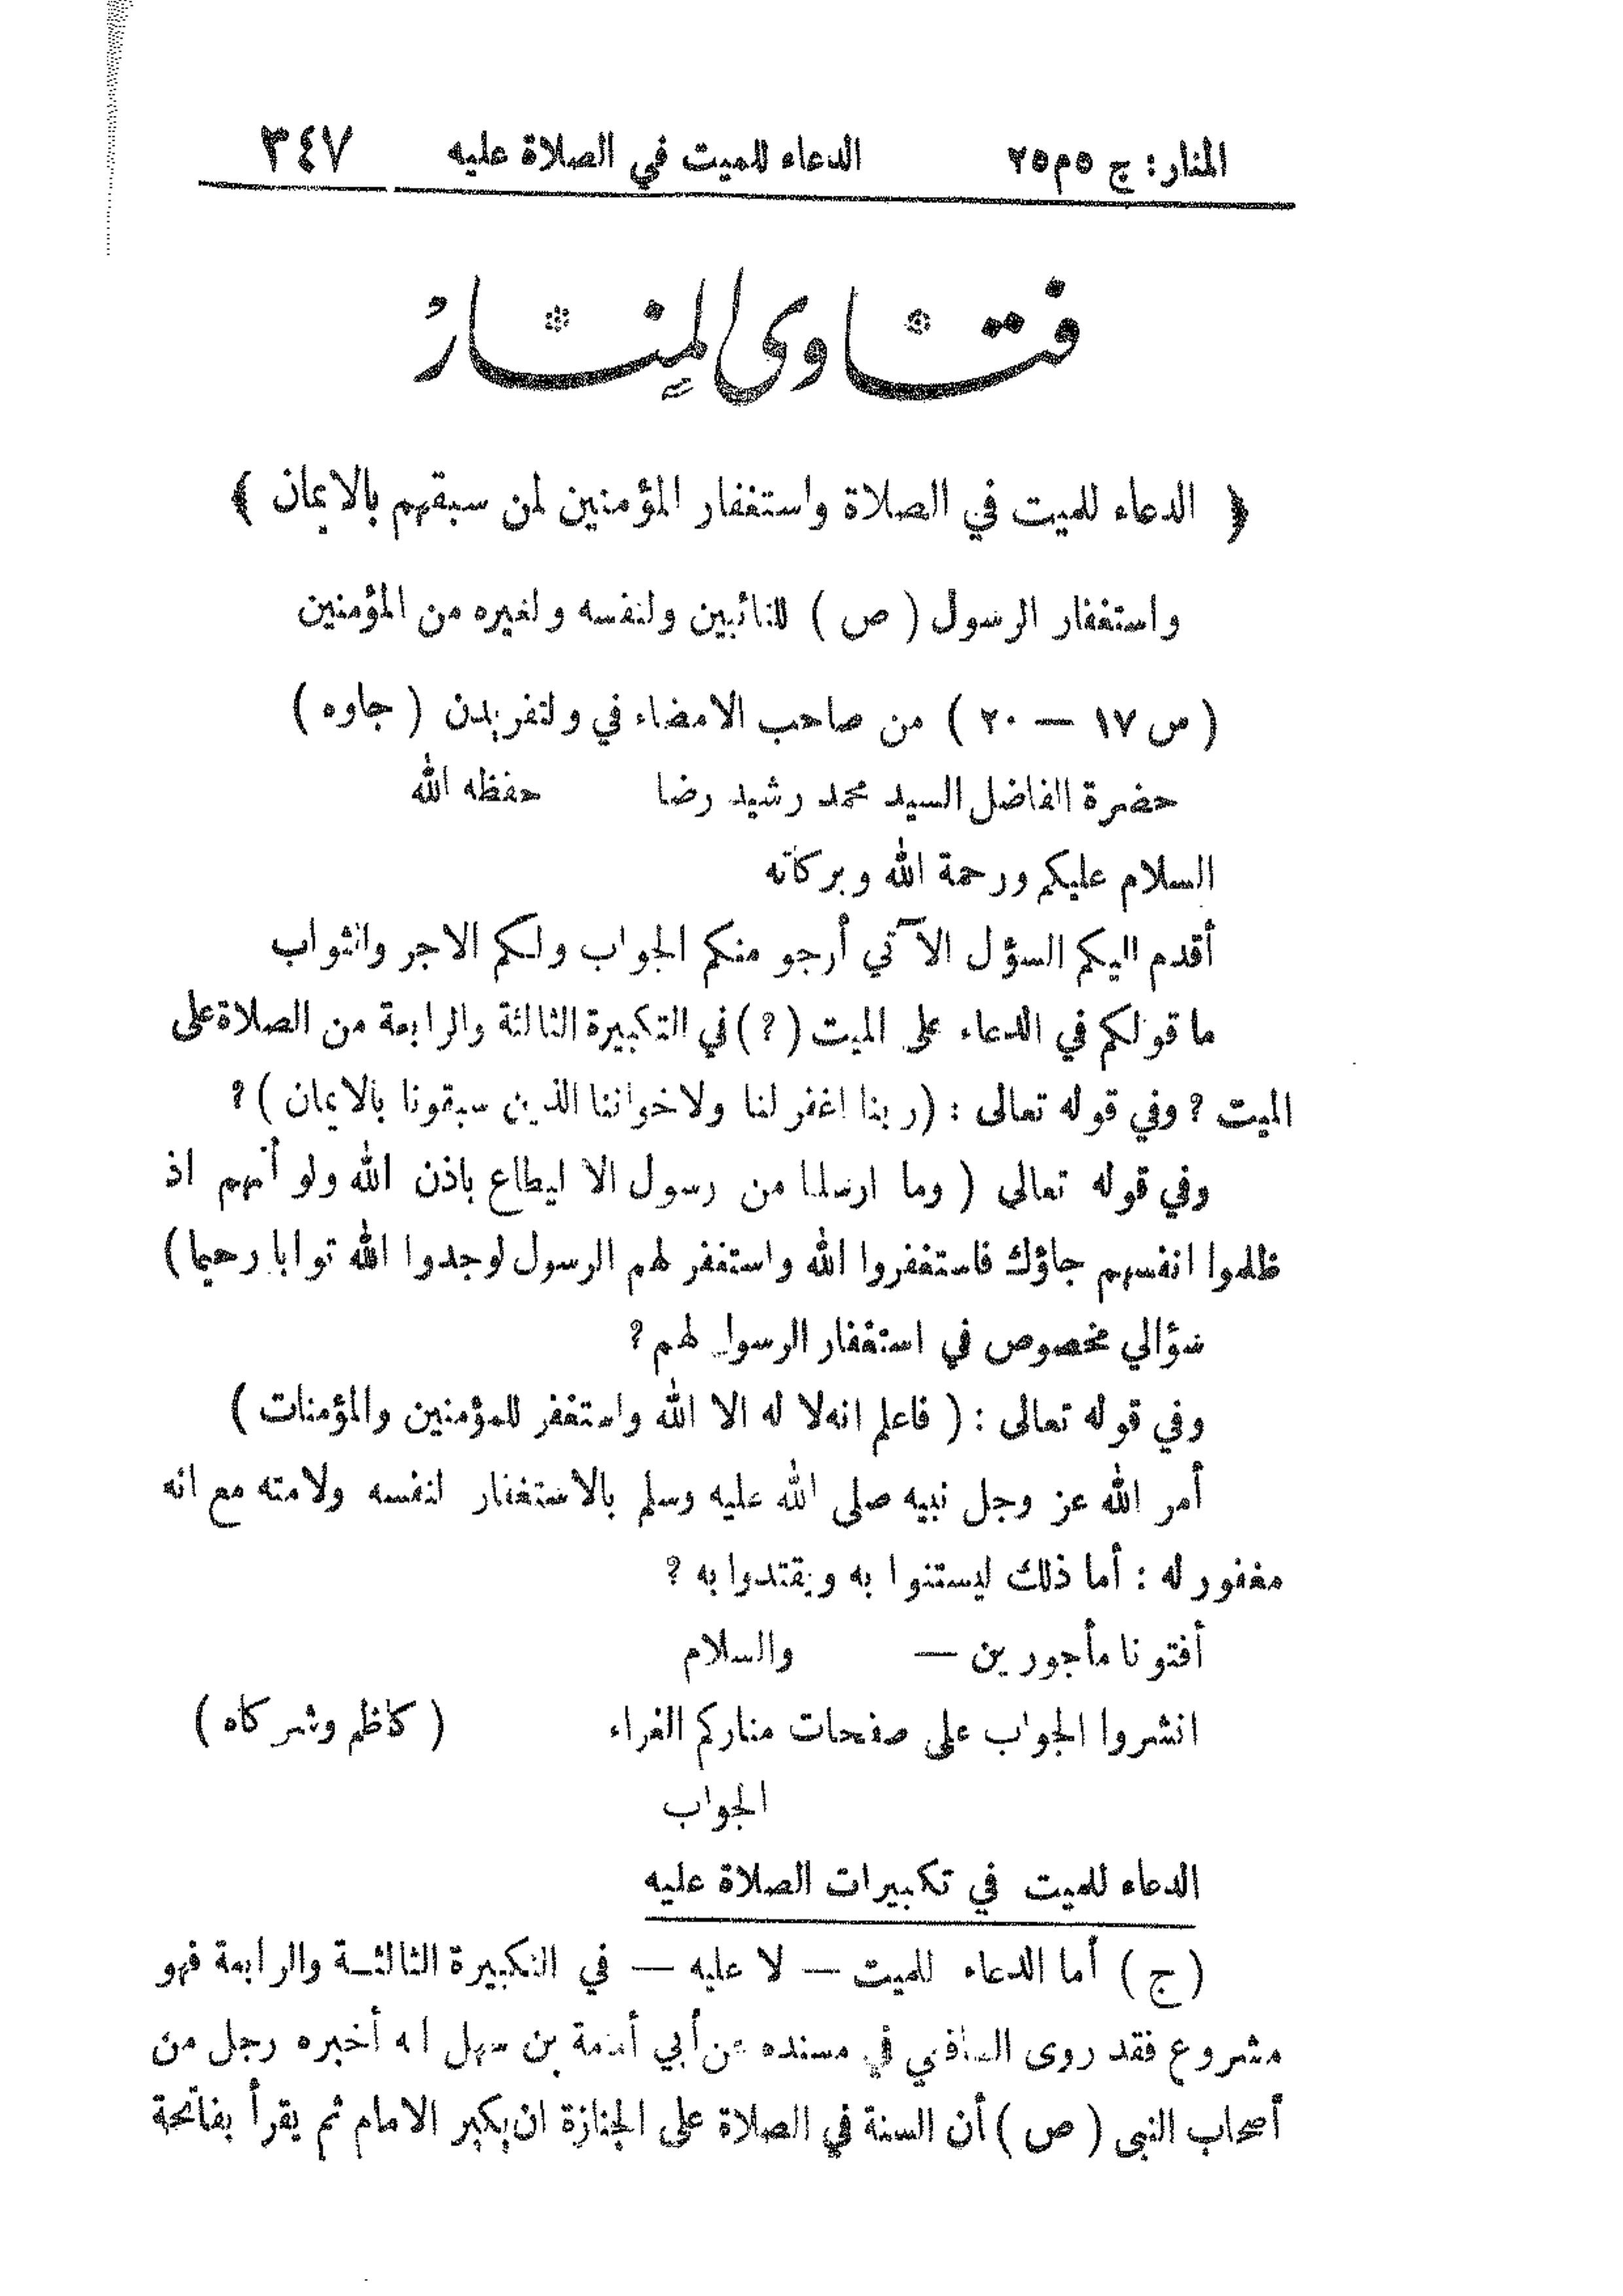 المنار: ج ٥ م ٢٥ الدعاء للميت في الصلاة عليه ٣٤٧
فتاوى المنار
﴿ الدعاء للميت في الصلاة واستغفار المؤمنين لمن سبقهم بالايمان ﴾
واستغفار الرسول ( ص ) للتائبين ولنفسه ولغيره من المؤمنين
( س ١٧ — ٢٠ ) من صاحب الامضاء في ولتفريدن ( جاوه )
حضرة الفاضل السيد محمد رشيد رضا حفظه الله
السلام عليكم ورحمة الله وبركاته
أقدم اليكم السؤل الآتي أرجو منكم الجواب ولكم الاجر والثواب
ما قولكم في الدعاء على الميت ( ? ) في التكبيرة الثالثة والرابعة من الصلاة على
الميت ? وفي قوله تعالى : ( ربنا اغفر لنا ولاخواننا الذين سبقونا بالايمان ) ?
وفي قوله تعالى ( وما ارسلنا من رسول الا ليطاع باذن الله ولو أنهم اذ
ظلموا انفسهم جاؤك فاستغفروا الله واستغفر لهم الرسول لوجدوا الله توابا رحيما )
سؤالي مخصوص في استغفار الرسول لهم ?
وفي قوله تعالى : ( فاعلم انه لا له الا الله واستغفر للمؤمنين والمؤمنات )
أمر الله عز وجل نبيه صلى الله عليه وسلم بالاستغفار لنفسه ولامته مع انه
مغفور له : أما ذلك ليستنوا به ويقتدوا به ?
أفتونا مأجورين — والسلام
انشروا الجواب على صفحات مناركم الغراء ( كاظم وشركاه )
الجواب
الدعاء للميت في تكبيرات الصلاة عليه
( ج ) أما الدعاء للميت — لا عليه — في التكبيرة الثالثة والرابعة فهو
مشروع فقد روى الشافعي في مسنده عن أبي أمامة بن سهل انه أخبره رجل من
أصحاب النبي ( ص ) أن السنة في الصلاة على الجنازة ان يكبر الامام ثم يقرأ بفاتحة